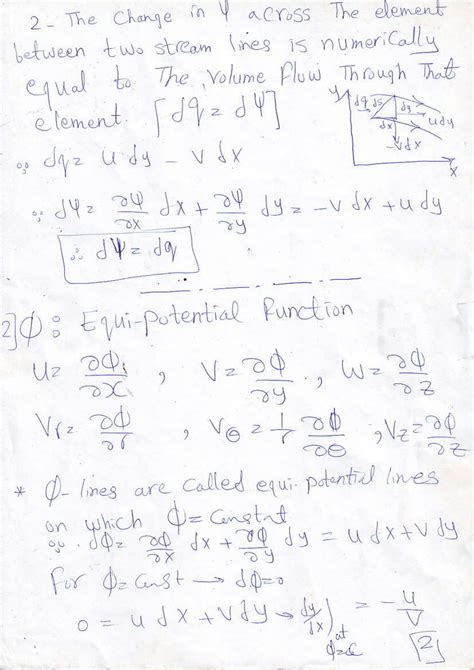 2 - The Change in ψ across The element
between two stream lines is numerically
equal to The, Volume flow Through That
element. [dq = dψ]
y dq ds dy u dy
dx
-v dx
x
∵ dq = u dy - v dx
∵ dψ = ∂ψ/∂x dx + ∂ψ/∂y dy = -v dx + u dy
∴ dψ = dq
2] Φ: Equi-potential Function
u = ∂Φ/∂x , v = ∂Φ/∂y , w = ∂Φ/∂z
Vr = ∂Φ/∂r , Vθ = 1/r ∂Φ/∂θ , Vz = ∂Φ/∂z
* Φ-lines are called equi-potential lines
on which Φ = Constnt
∵ dΦ = ∂Φ/∂x dx + ∂Φ/∂y dy = u dx + v dy
For Φ = Const → dΦ = 0
0 = u dx + v dy → dy/dx)at Φ=c = -u/v
2